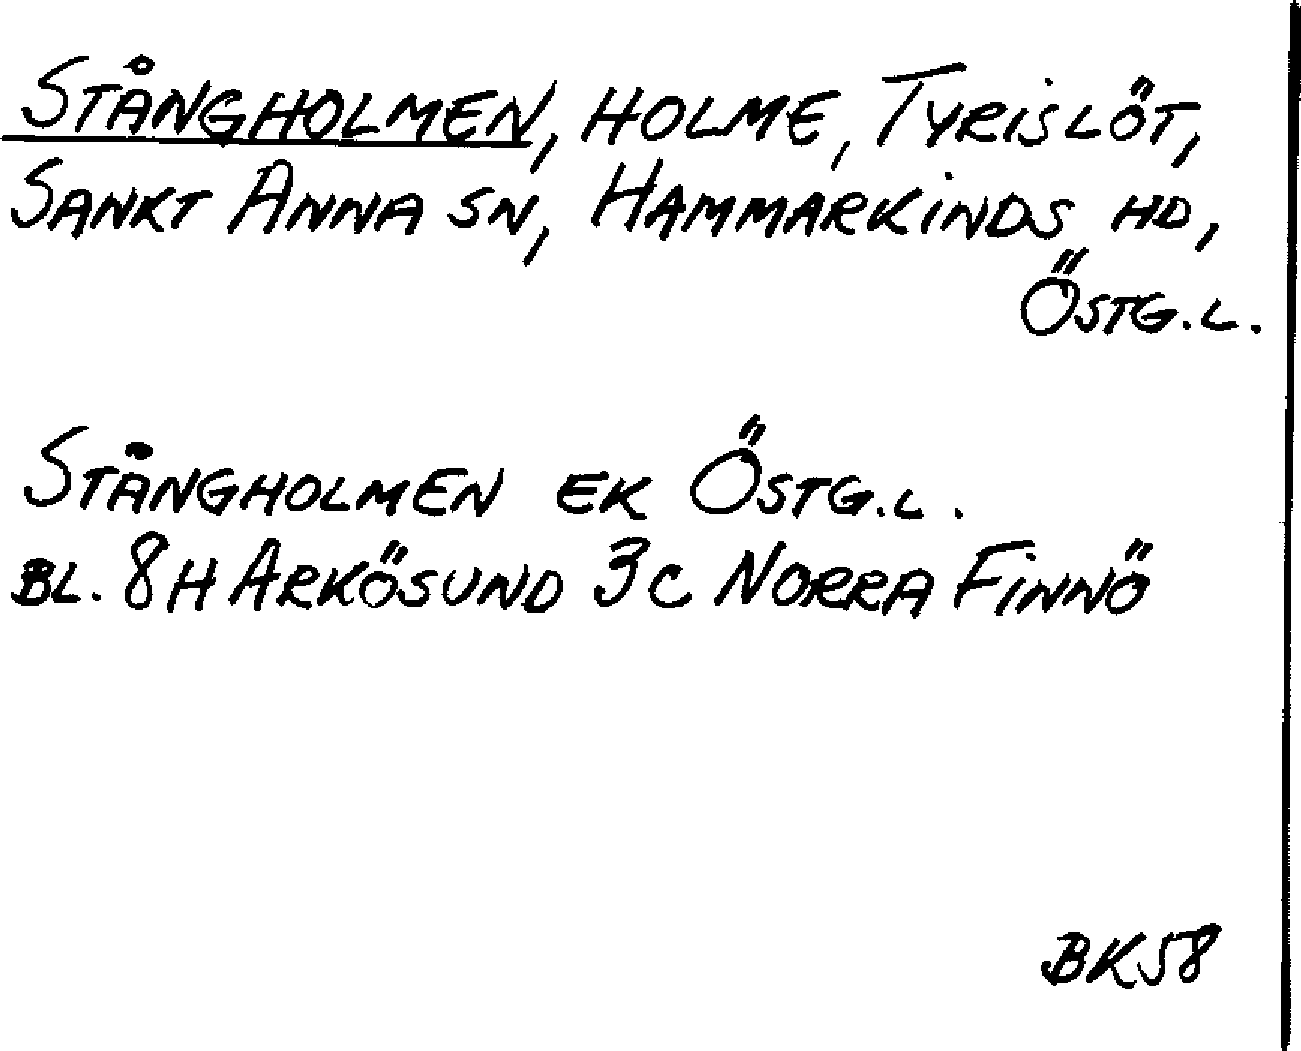 STÅNGHOLMEN, HOLME, TYRISLÖT,
SANKT ANNA SN, HAMMARKINDS HD,
ÖSTG.L.
STÅNGHOLMEN EK ÖSTG.L.
BL. 8H ARKÖSUND 3C NORRA FINNÖ
BK58